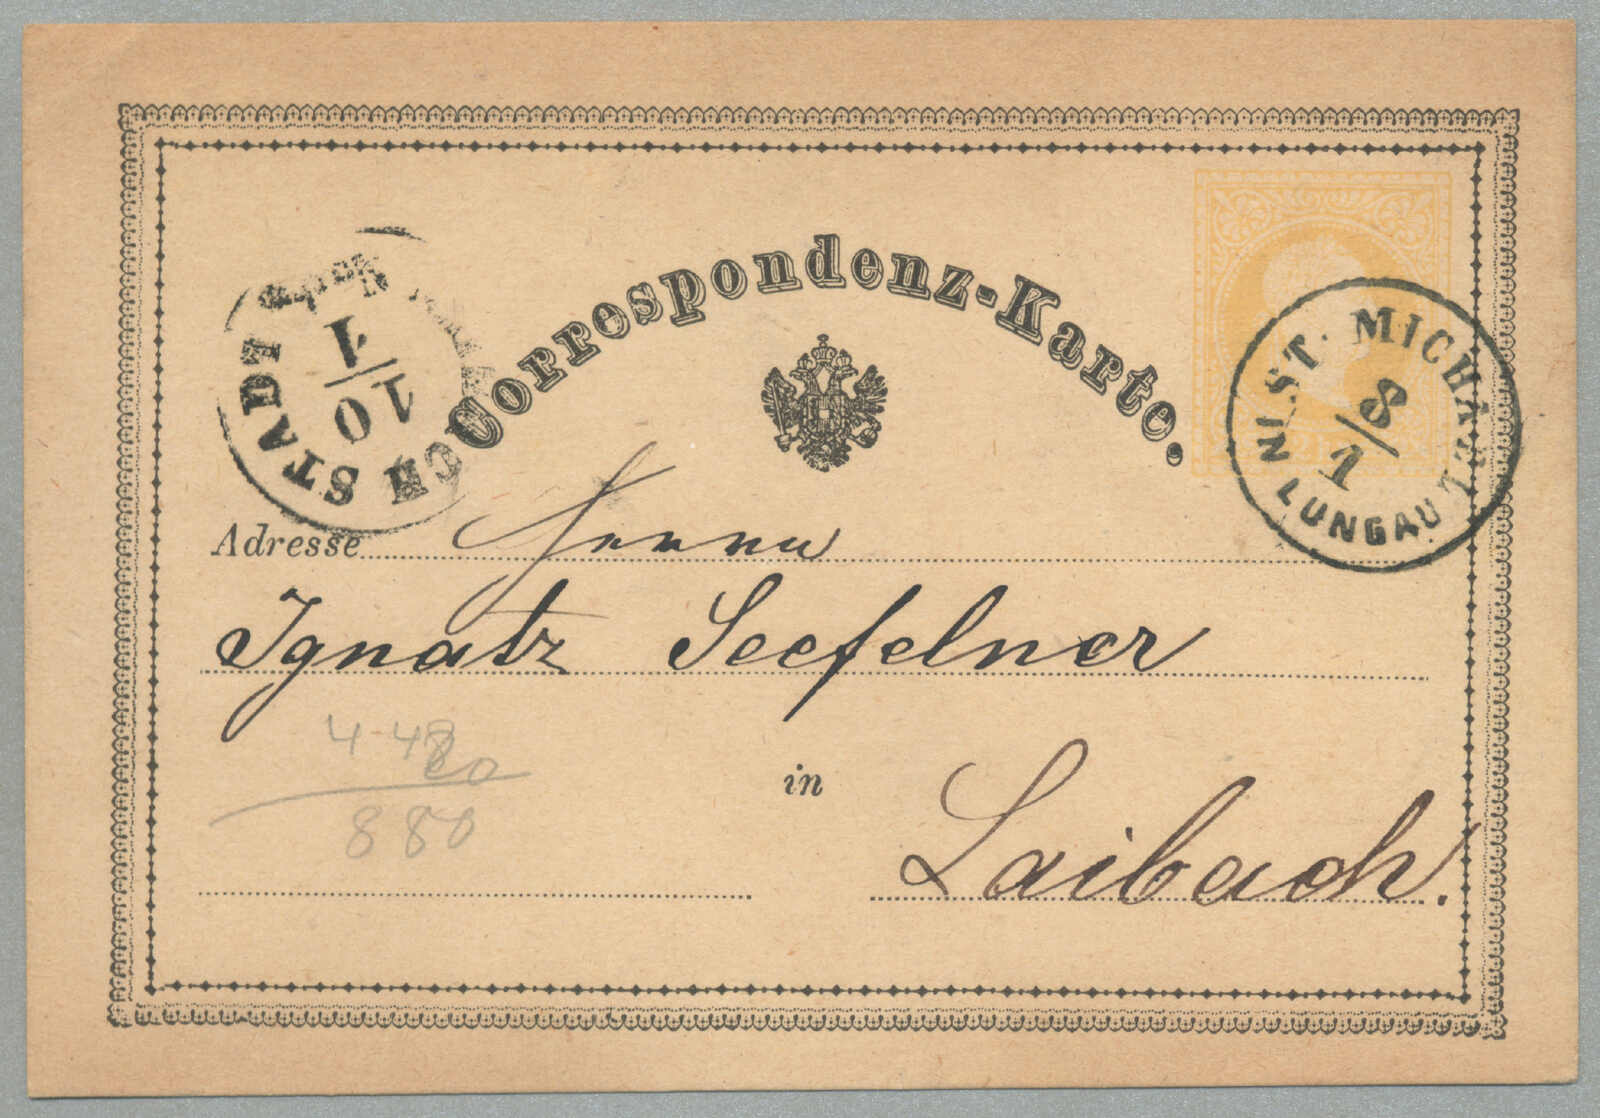 Correspondenz-Karte.
ST. MICHAEL
8/1
IN LUNGAU
STADT
10/1
Adresse Herrn
Ignatz Seefelner
4 48
880
in
Laibach.